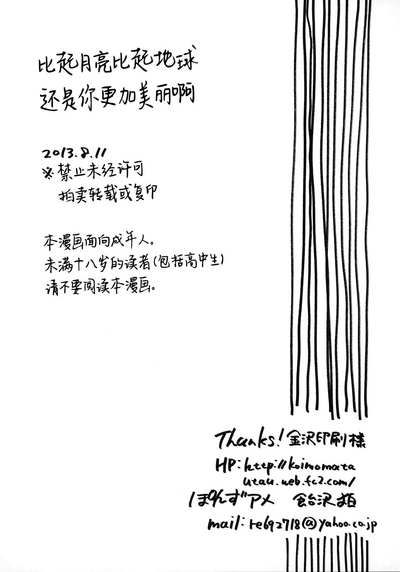 比起月亮比起地球
还是你更加美丽啊
2013.8.11
※禁止未经许可
拍卖转载或复印
本漫画面向成年人。
未满十八岁的读者(包括高中生)
请不要阅读本漫画。
Thanks! 金沢印刷様
HP: http://koimomata
utau.web.fc2.com/
ぽんずアメ 飴沢
mail: re692718@yahoo.co.jp